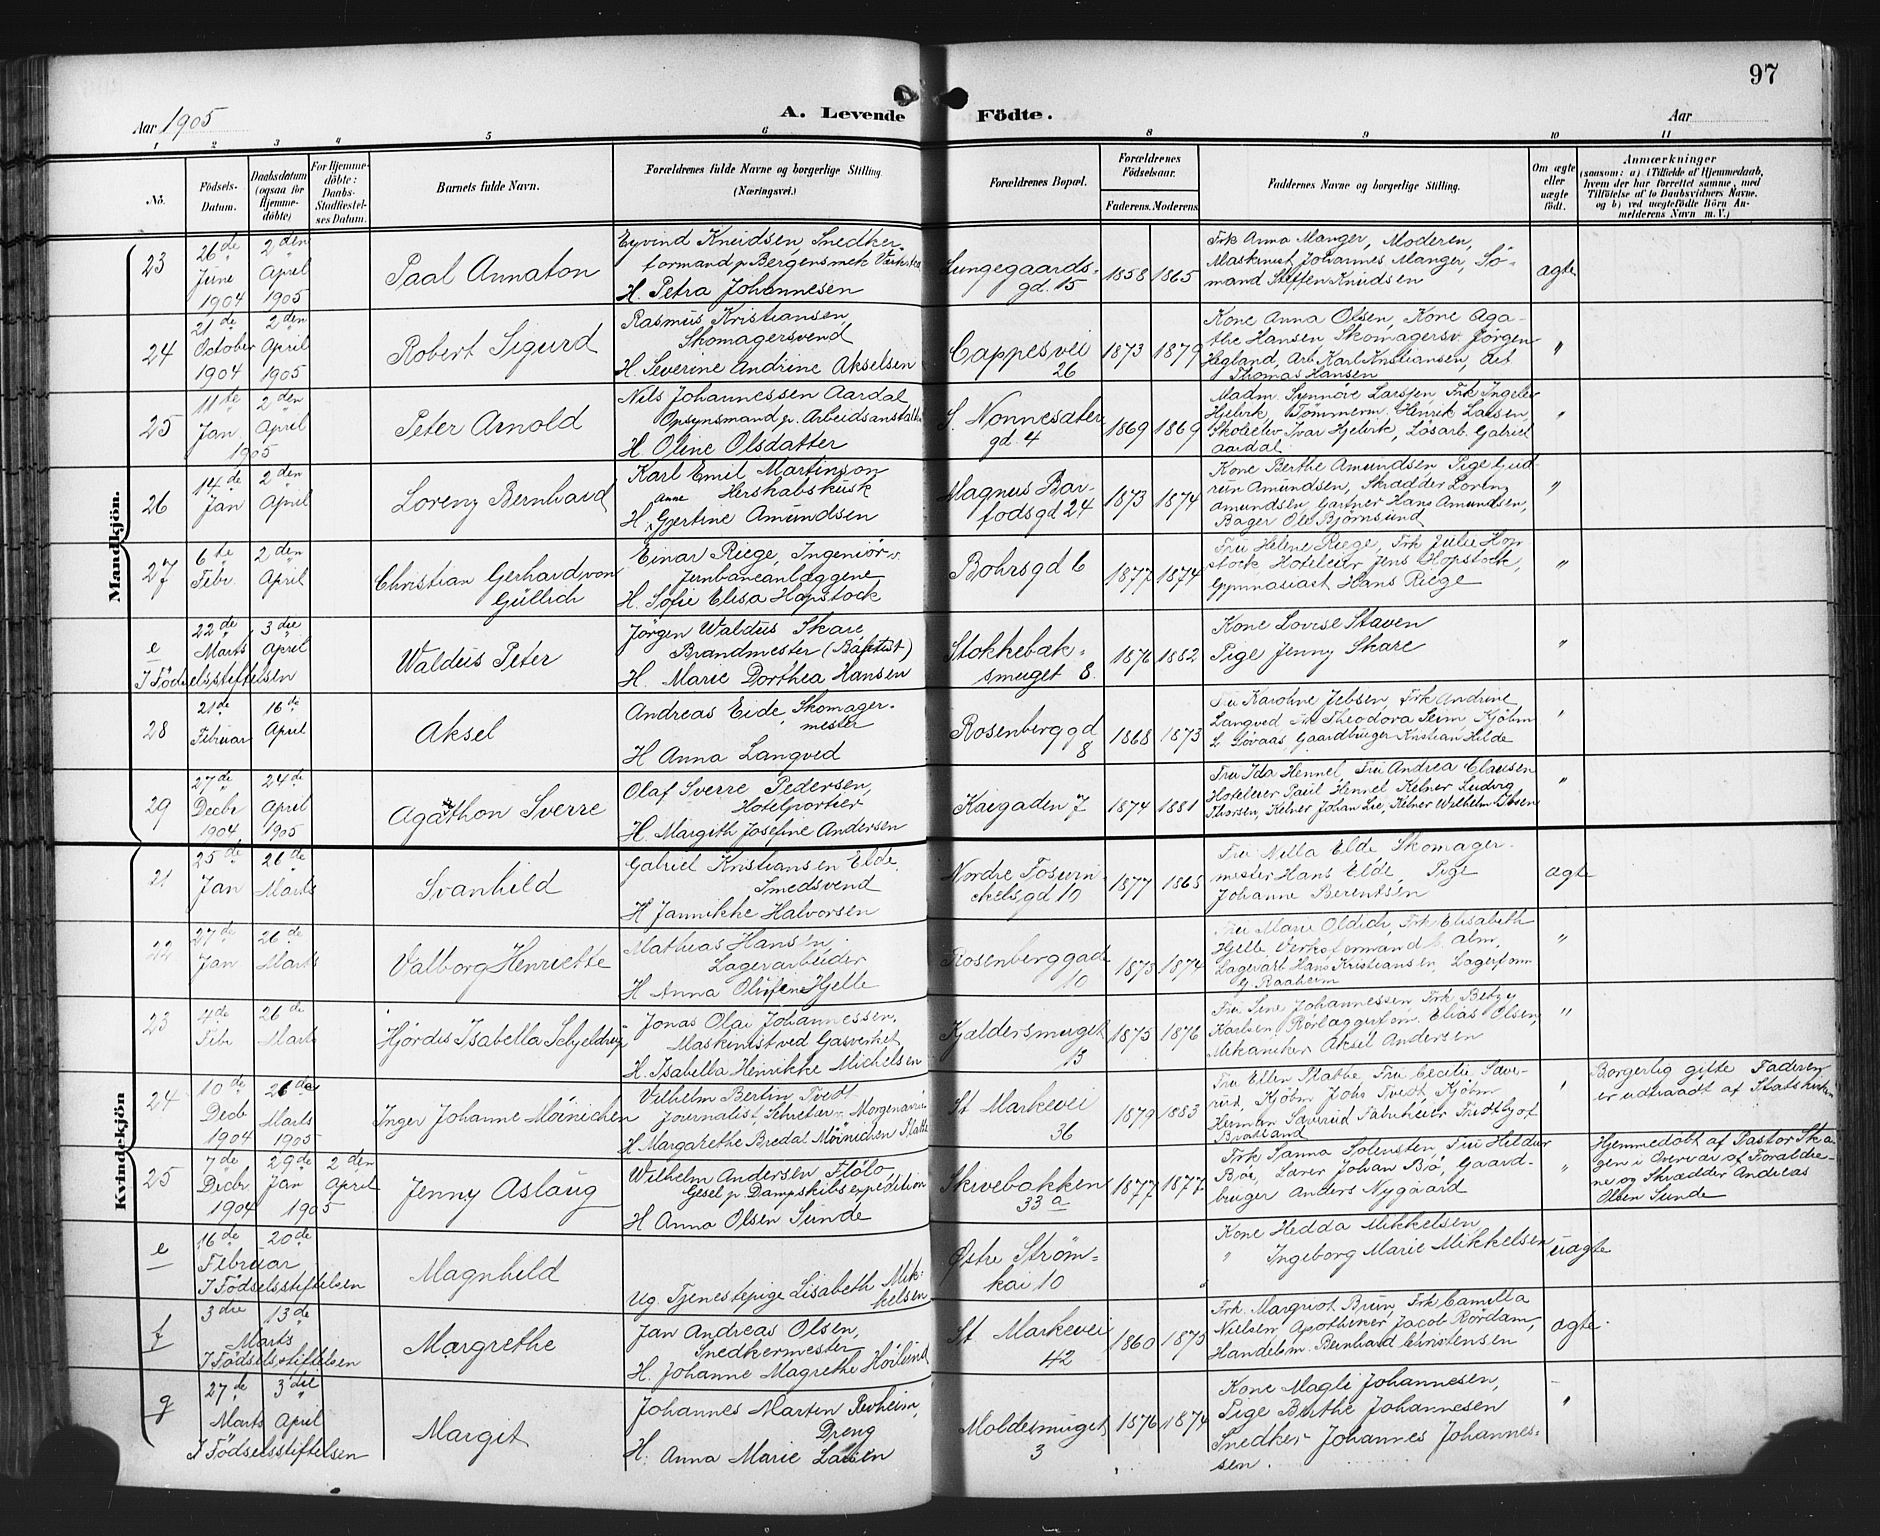 97
Aar 1905
A. Levende Födte.
Aar
1 2 3 4 5 6 8 9 10 11
No.
Födsels-Datum.
Daabsdatum (ogsaa for Hjemme-döbte)
For Hjemme-döbte: Daabs-Stadfæstel-ses Datum.
Barnets fulde Navn.
Forældrenes fulde Navne og borgerlige Stilling (Næringsvei.)
Forældrenes Bopæl.
Forældrenes Födselsaar.
Faderens. Moderens.
Faddernes Navne og borgerlige Stilling.
Om ægte eller uægte födt.
Anmærkninger
(saasom: a) i Tilfælde af Hjemmedaab, hvem der har forrettet samme, med Tilföielse af to Daabsvidners Navne. og b) ved uægtefödte Börn Anmelderens Navn m. V.)
Mandkjön.
23 26de Juni 1904 2den April 1905
Paal Annaton
Eyvind Knudsen, Snedker-
formand p Bergens mek Værksted
H. Petra Johannesen
Lungegaards-
gd. 15
1858 1865
Frk Anna Manger, Moderen,
Maskinist Johannes Manger, Sö-
mand Steffen Knudsen
ægte
24 21de October 1904 2den April 1905
Robert Sigurd
Rasmus Kristiansen,
Skomagersvend
H. Severine Andrine Akselsen
Cappesvei
26
1873 1879
Kone Anna Olsen, Kone Aga-
the Hansen, Skomagersv. Jörgen
Hegland, Arb. Karl Kristiansen, Arb
Thomas Hansen
"
25 11te Jan 2den April 1905
Peter Arnold
Nils Johannessen Aardal
Opsynsmand p. Arbeidsanstalten
H. Oline Olsdatter
S. Nonnesæter
gd. 4
1869 1869
Madm. Synnöve Larsen, Frk Ingeleiv
Hjelvik, Tömmerm. Henrik Larsen,
Skoleelev Ivar Hjelvik, Lösarb. Gabriel
Aardal
"
26 14de Jan 2den April
Lorenz Bernhard
Karl Emil Martinson
Herskabskusk
H. Anne Gjertine Amundsen
Magnus Bar-
fodsgd 24
1873 1874
Kone Berthe Amundsen Pige Gud-
run Amundsen, Skrædder Lorenz
Amundsen, Gartner Hans Amundsen,
Bager Ole Björnsund
"
27 6te Febr. 2den April
Christian Gerhard von
Güllich
Einar Riege, Ingeniör v.
Jernbaneanlæggene
H. Sofie Elisa Hopstock
Bohrsgd 6
1877 1874
Fru Helene Riege, Frk Julie Hop-
stock Hoteleier Jens Hopstock,
Gymnasiast Hans Riege
"
e 22de Marts 3die April
I Födselsstiftelsen
Waldus Peter
Jörgen Waldus Skare
Brandmester (Baptist)
H. Marie Dorthea Hansen
Stokkebak-
smuget 8.
1876 1882
Kone Lovise Staven
Pige Jenny Skare
"
28 21de Februar 16de April
Aksel
Andreas Eide, Skomager-
mester
H Anna Langved
Rosenberggd
8
1868 1873
Fru Karoline Jebsen, Frk Andrine
Langved Frk Theodora Seim Kjöbm
L Sövaas Gaardbruger Kristian Hilde
"
29 27de Decbr 1904 24de April 1905
Agathon Sverre
Olaf Sverre Pedersen,
Hotelportier
H. Margith Josefine Andersen
Kaigaden 7
1874 1881
Fru Ida Hennel, Fru Andrea Clausen
Hoteleier Paul Hennel Kelner Ludvig
Thorsen, Kelner Johan Lie, Kelner Wilhelm Ibsen
"
Kvindekjön
21 25de Jan 26de Marts
Svanhild
Gabriel Kristiansen Elde,
Smedsvend
H Jannikke Halvorsen
Nordre Foswin-
ckelsgd 10
1877 1865
Fru Nilla Elde Skomager-
mester Hans Elde, Pige
Johanne Berentsen
ægte
22 27de Jan 26de Marts
Valborg Henriette
Mathias Hansen
Lagerarbeider
H Anna Olufine Hjelle
Rosenberggad
10
1873 1874
Fru Marie Oldich, Frk Elisabeth
Hjelle Verksformand C. Alm,
Lagerarb Hans Kristiansen, Lagerform
G Raaheim
"
23 4de Febr 26de Marts
Hjördis Isabella Schjeldrup
Jonas Olai Johannessen,
Maskinist ved Gasverket
H. Isabella Henrikke Michelsen
Kjeldersmuget
13
1875 1876
Fru Sene Johannessen Frk Betzy
Karlsen Rörlæggerform. Elias Olsen,
Mekaniker Aksel Andersen
"
24 10de Decb 1904 26de Marts 1905
Inger Johanne Möinichen
Vilhelm Bertin Tvedt
Journalist, Sekretær v. Morgenavis
H Margarethe Bredal Möinichen Platte
St Markevei
36
1879 1883
Fru Ellen Plathe Fru Cecilie Saver-
rud, Kjöbm Johs Tvedt, Kjöbm
Herman Saverud Fabrikeier
"
Borgerlig gifte Faderen
er udtraadt af Statskirken
25 7de Decbr 1904 29de Jan 1905 2den April
Jenny Aslaug
Wilhelm Andersen Flölo
Gesel p Dampskibsexpedition
H Anna Olsen Sunde
Skivebakken
33 a
1877 1877
Frk Hanna Solensten, Fru Hildur
Bö, Lærer Johan Bö, Gaard-
bruger Anders Nygaard
"
Hjemmedöbt af Pastor Ska-
gen i Overvær af Forældre-
ne og Skrædder Andreas
Olsen Sunde
e 16de 20de
Februar
I Födselsstiftelsen
Magnhild
Ug. Tjenestepige Lisabeth Mik-
kelsen
Østre Ström-
kai 10
Kone Hedda Mikkelsen
" Ingeborg Marie Mikkelsen
uægte
f 3die 13de
Marts
I Födselsstiftelsen
Margrethe
Jan Andreas Olsen,
Snedkermester
H. Johanne Magrethe Hoilund
St Markevei
42
1860 1875
Frk. Margrêt Brun, Frk Camilla
Nielsen Apotheker Jacob Rördam,
Handelsm. Bernhard Christensen
ægte.
g 27de Marts 3die April
I Födselsstiftelsen
Margit
Johannes Marten Revheim,
Dreng
H. Anna Marie Larsen
Moldesmuget
3
1876 1874
Kone Magli Johannesen,
Pige Berthe Johannesen
Snedker Johannes Johannes-
sen.
"